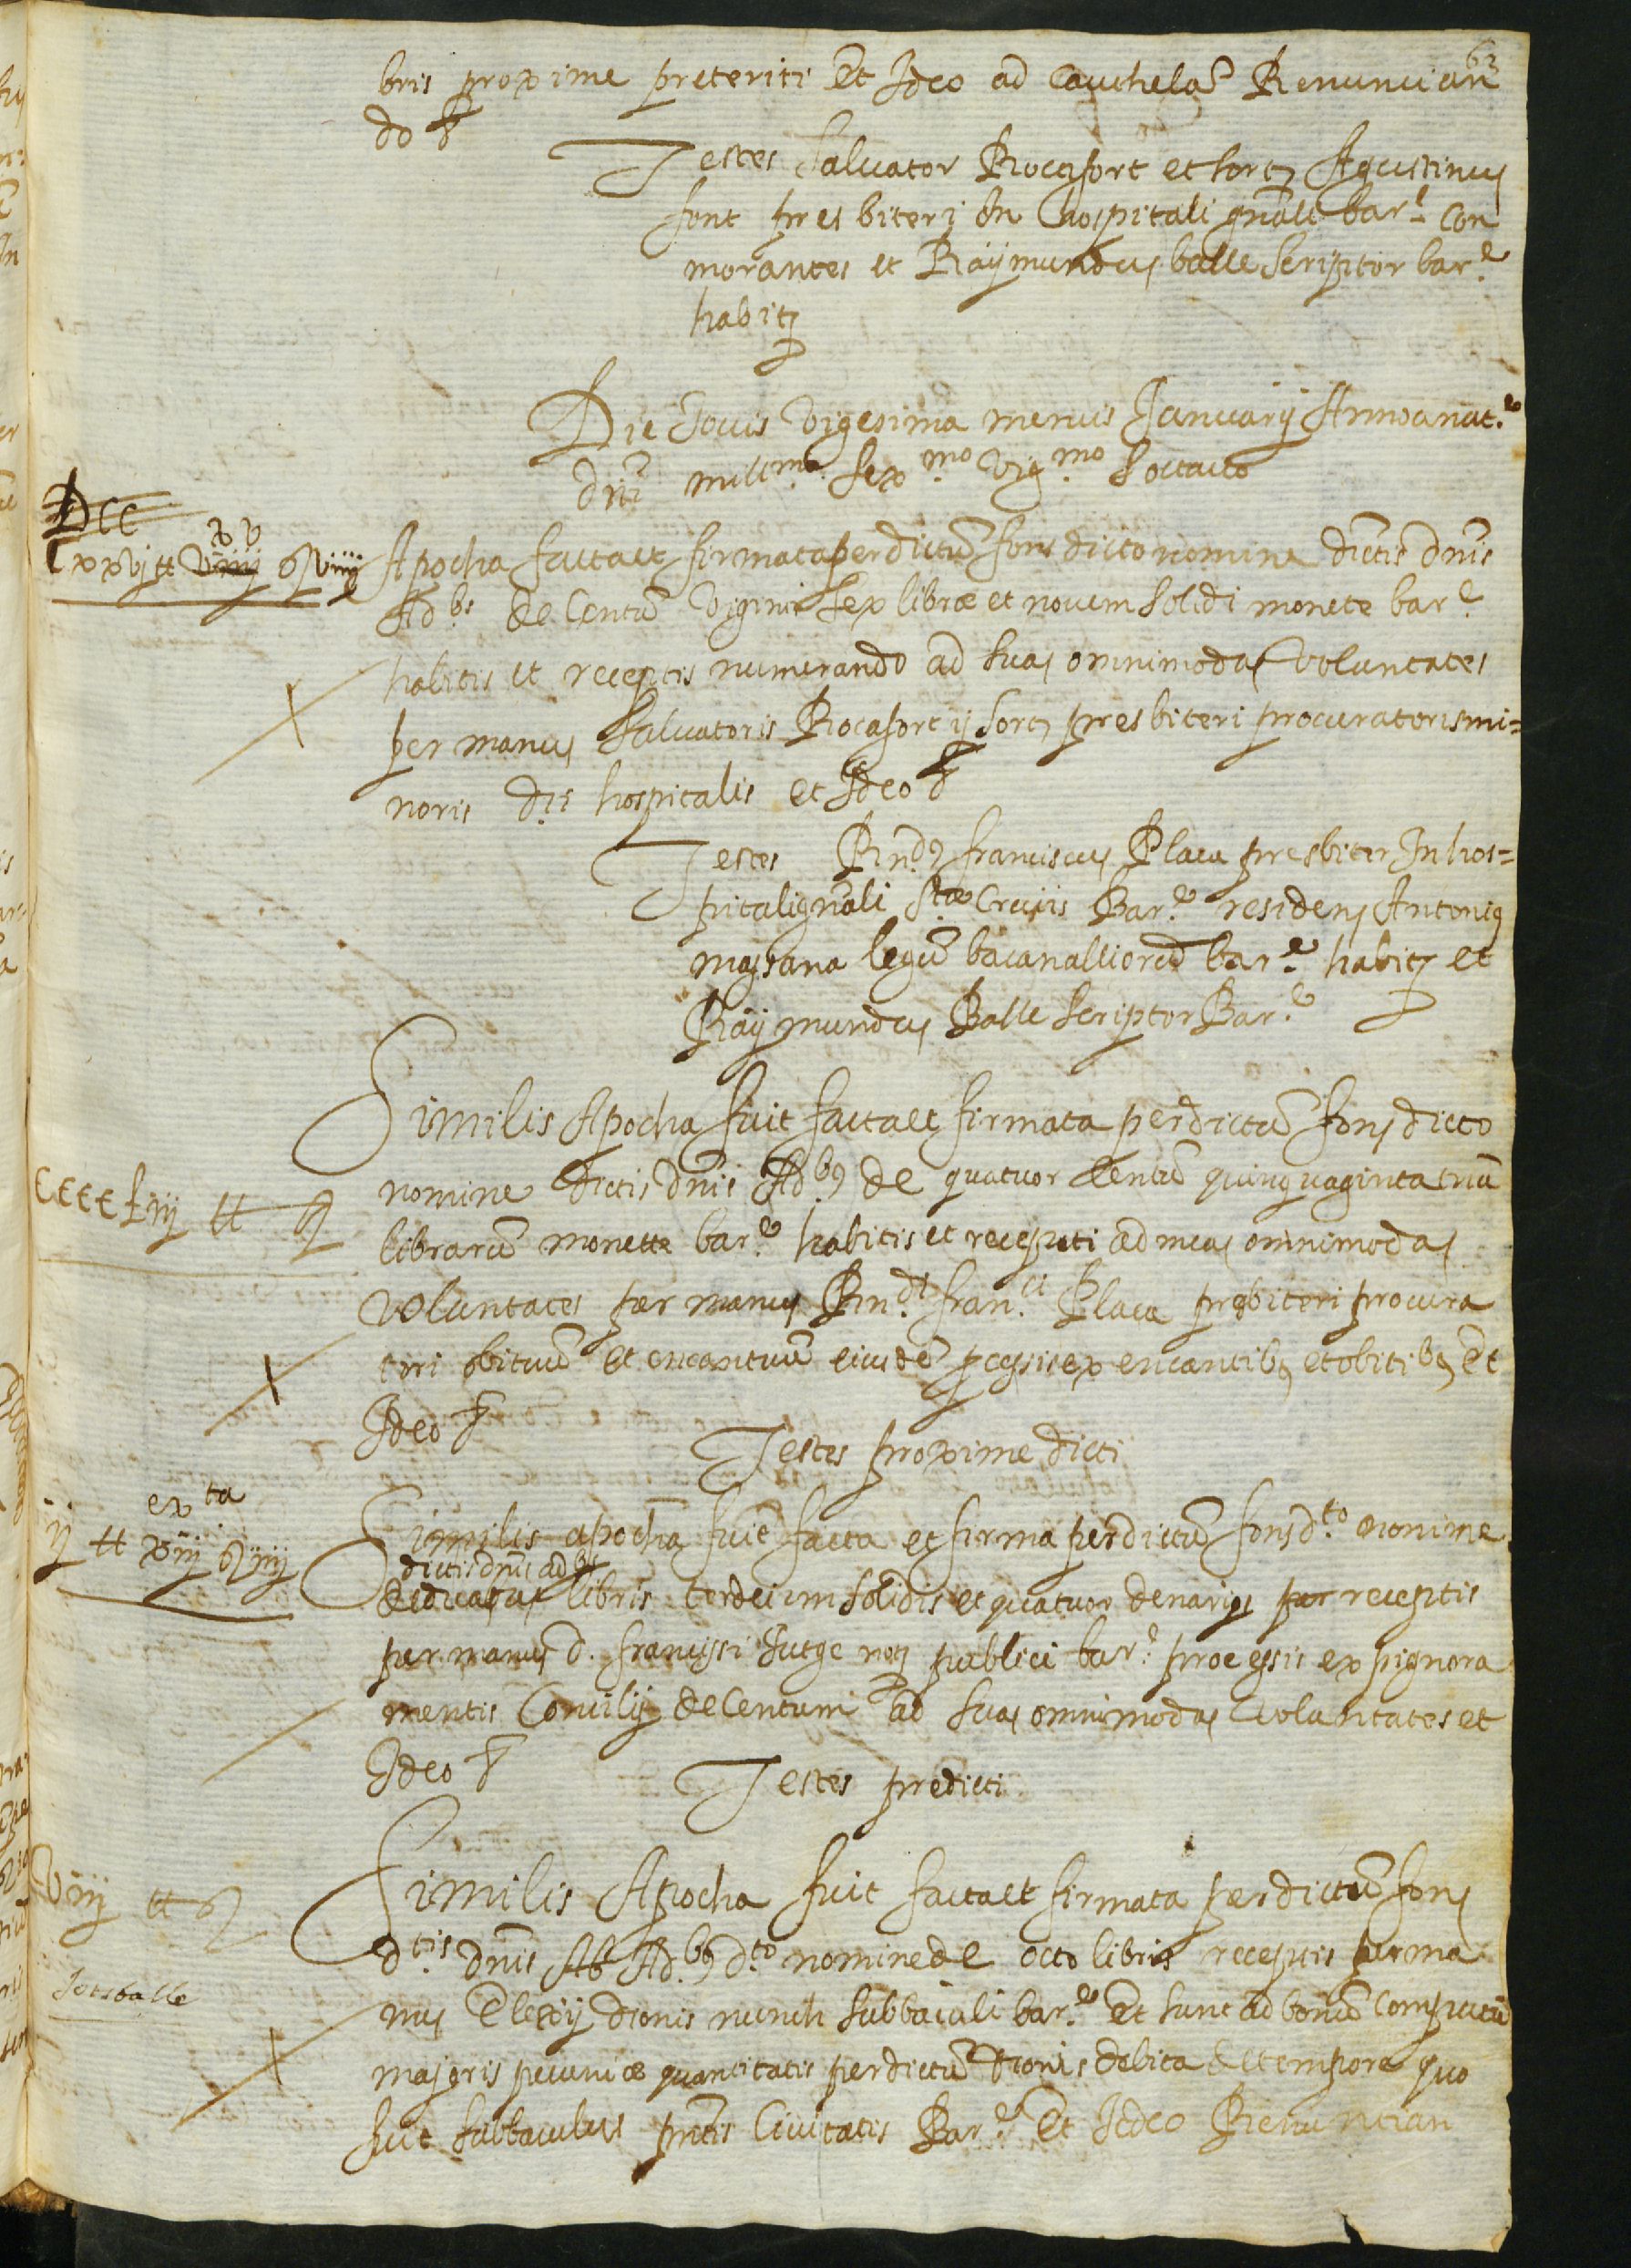 63
bris proxime preteriti Et Ideo ad Cauthelã Renuncian
do &
Testes Salvator Rocafort et fortz Agustinus
font presbiteri In hospitali gñali bar.e Con
morantes et Raÿmundus balle scriptor bar.e
habitz
Die Jovis Vigesima mensis Januarij Anno a nat.e
dñi mill.mo sex.mo Vig.mo octavo
Apocha facta et firmata per dictũ fons dicto nomine dictis dñis
Ad.bs de Centũ Viginti sex libræ et novem solidi monete bar.e
habitis et receptis numerando ad suas omnimodas voluntates
per manus Salvatoris Rocafort ij fortz presbiteri procuratoris mi=
noris d.ti hospitalis et Ideo &
Testes Rnd9 franciscus Placa presbiter In hos=
pitali gñali S.tæ Crucis Bar.e residens Antonius
massana legũ bacanalliorũ bar.e habitz et
Raÿmundus Balle scriptor Bar.e
Similis Apocha fuit facta et firmata per dictũ fons dicto
nomine dictis dñis Ad.b9 de quatuor Centũ quinquaginta triũ
librarũ monette bar.e habitis et recepti ad meas omnimodas
voluntates per manus Rn.di fran.ci Placa prebiteri procura
tori obituũ et encantuũ eiusdẽ pcessis ex encantib9 et obitib9 Et
Ideo &
Testes proxime dicti
ex ta
ij tt xiij ß iiij
Similis apocha fuit facta et firma per dictũ fons d.to nomine
dictis dñis ad.bs
libris terdecim solidis et quatuor denarijs per receptis
per manus d. francissi sutge notz publici bar.e processis ex pignora
mentis Concilij de Centum ad suas omnimodas voluntates et
Ideo &
Testes predicti
Similis Apocha fuit facta et firmata per dictũ fons
d.tis dñis Ab Ad.b9 d.to nomine de octo libris receptis per ma
nus dionis nunch subbaiuli bar.e Et sunt ad bonũ Computũ
majoris pecuniæ quantitatis per dictũ dionis debita de tempore quo
fuit subbaiulus pñtis Civitatis Bar.e Et Ideo Renuncian
Cxxvj tt
CCCC Liij tt ß
Viij tt ß